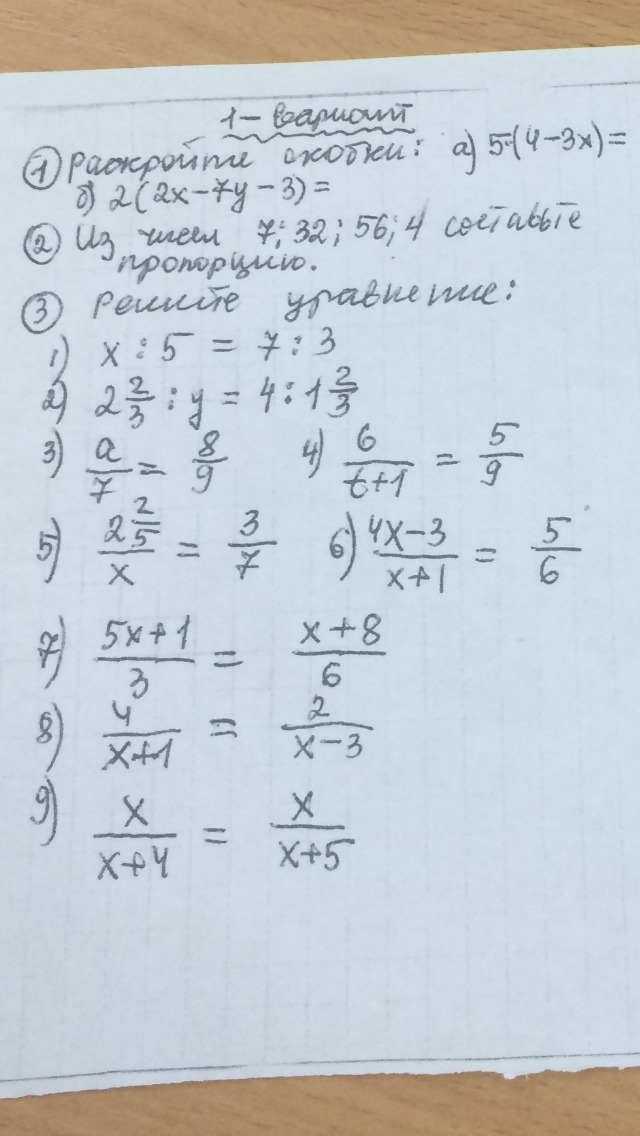 1 – вариант
① Раскройте скобки: а) 5·(4 – 3x) =
б) 2(2x – 7y – 3) =
② Из чисел 7; 32; 56; 4 составьте
пропорцию.
③ Решите уравнение:
1) x : 5 = 7 : 3
2) 2 2/3 : y = 4 : 1 2/3
3) a/7 = 8/9 4) 6/(t+1) = 5/9
5) (2 2/5)/x = 3/7 6) (4x–3)/(x+1) = 5/6
7) (5x+1)/3 = (x+8)/6
8) 4/(x+1) = 2/(x–3)
9) x/(x+4) = x/(x+5)